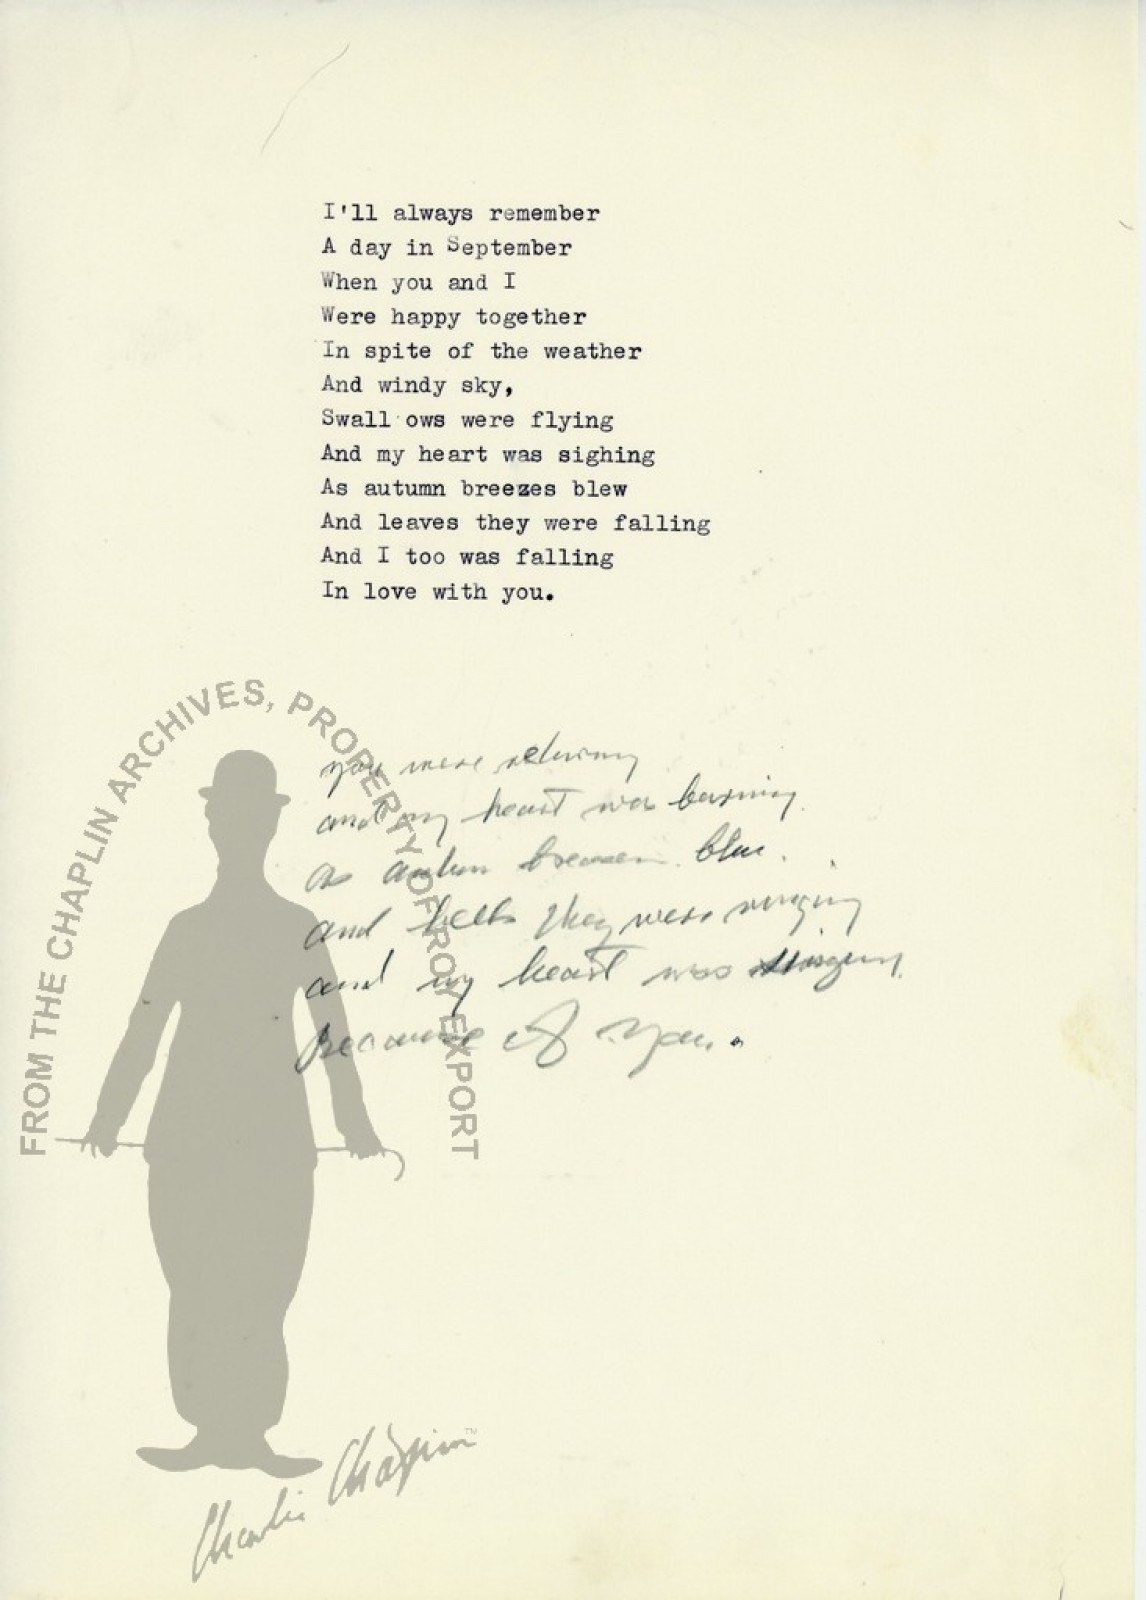 I'll always remember
A day in September
When you and I
Were happy together
In spite of the weather
And windy sky,
Swall ows were flying
And my heart was sighing
As autumn breezes blew
And leaves they were falling
And I too was falling
In love with you.
you were
and my heart was burning
as blew.
and bells they were ringing
and my heart was
Because of you.
FROM THE CHAPLIN ARCHIVES, PROPERTY OF ROY EXPORT
Charlie Chaplin
TM